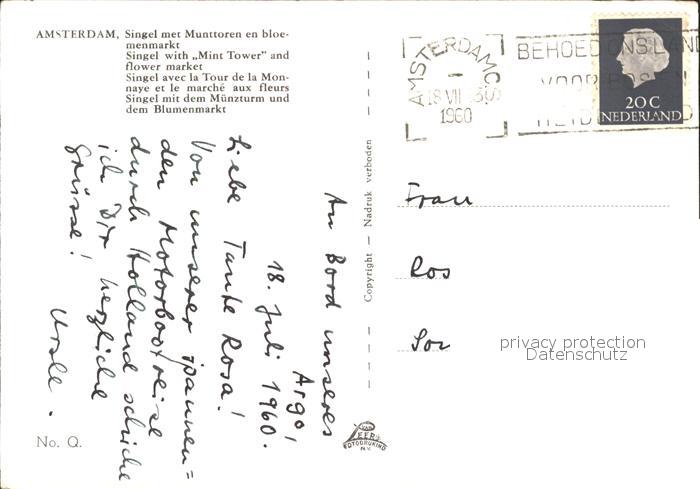 AMSTERDAM, Singel met Munttoren en bloe-
menmarkt
Singel with „Mint Tower" and
flower market
Singel avec la Tour de la Mon-
naye et le marché aux fleurs
Singel mit dem Münzturm und
dem Blumenmarkt
An Bord unseres
Argo,
18. Juli 1960.
Liebe Tante Rosa!
Von unserer spannen=
den Motorbootreise
durch Holland schicke
ich Dir herzliche
Grüsse!
Ursle.
No. Q.
Copyright — Nadruk verboden
VAN LEER'S
FOTODRUKIND
N.V.
AMSTERDAM CS
18 VII
1960
BEHOED ONS LAND
VOOR BOS EN
20 C
NEDERLAND
Frau
Ros
Sor
privacy protection
Datenschutz